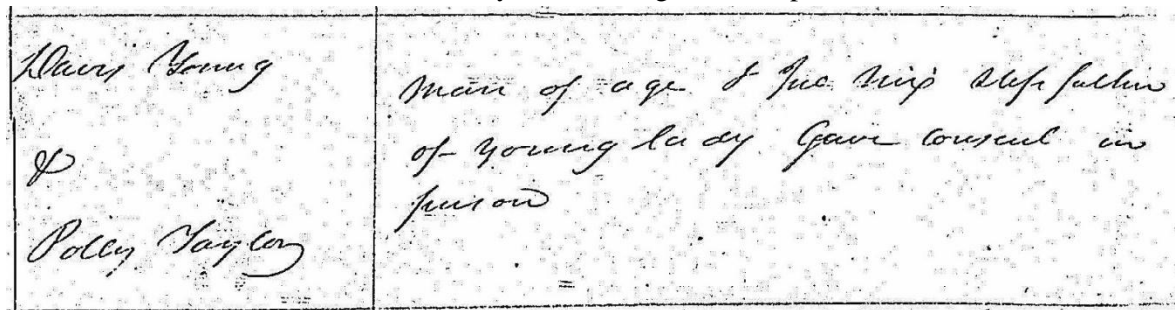 Davis Young
&
Polly Taylor
Man of age & Joe Nix Step father
of Young lady Gave consent in
person